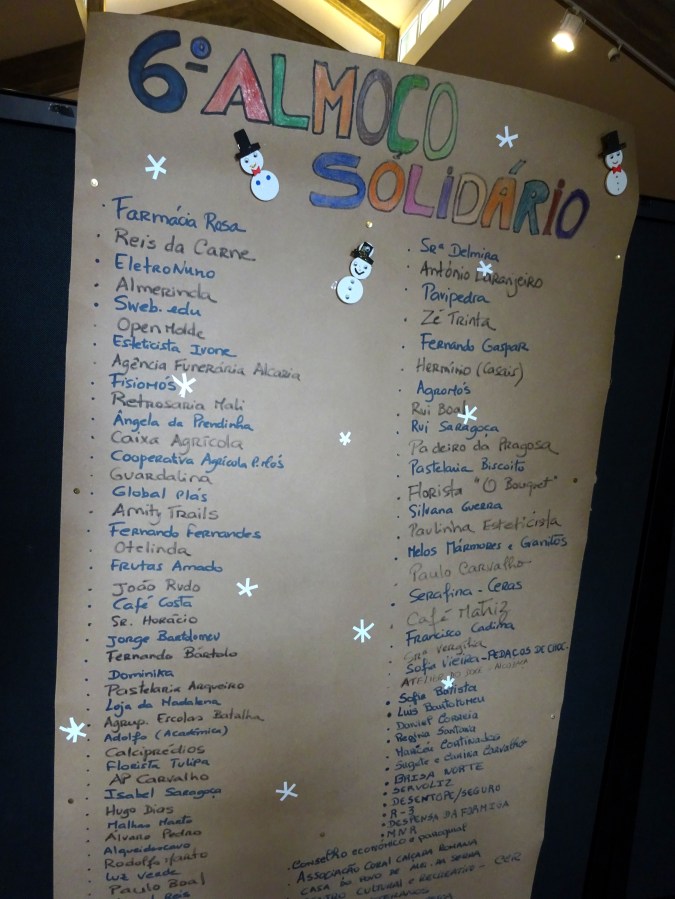 6º ALMOÇO
SOLIDÁRIO
Farmácia Rosa
Reis da Carne
EletroNuno
Almerinda
Sweb.edu
Open Molde
Esteticista Ivone
Agência Funerária Alcaria
Fisiomós
Retrosaria Mali
Ângela da Prendinha
Caixa Agrícola
Cooperativa Agrícola P.Mós
Guardalina
Global Plás
Amity Trails
Fernando Fernandes
Otelinda
Frutas Amado
João Rudo
Café Costa
Sr. Horácio
Jorge Bartolomeu
Fernando Bártolo
Dominika
Pastelaria Arqueiro
Loja da Madalena
Agrup. Escolas Batalha
Adolfo (Académica)
Calciprédios
Florista Tulipa
AP Carvalho
Isabel Saragoça
Hugo Dias
Malhas
Álvaro Pedro
Rodolfo
Luz Verde
Paulo Boal
Reis
Srª Delmira
António Laranjeiro
Pavipedra
Zé Trinta
Fernando Gaspar
Hermínio (Casais)
Agromós
Rui Boal
Rui Saragoça
Padeiro da Pragosa
Pastelaria Biscoito
Florista "O Bouquet"
Silvana Guerra
Paulinha Esteticista
Melos Mármores e Granitos
Paulo Carvalho
Serafina - Ceras
Café Matriz
Francisco Cadima
Srª Vergília
Sofia Vieira - PEDAÇOS DE CHOC.
Sofia Batista
Luis Bartolomeu
Daniel Correia
Regina Santana
Cortinados
e Carina Carvalho
BRISA NORTE
SERVOLIZ
DESENTOPE/SEGURO
R-3
DESPENSA DA FORMIGA
MNR
Conselho económico e paroquial
Associação Coral Calçada Romana
CASA DO POVO DE
CENTRO CULTURAL e RECREATIVO - CCR